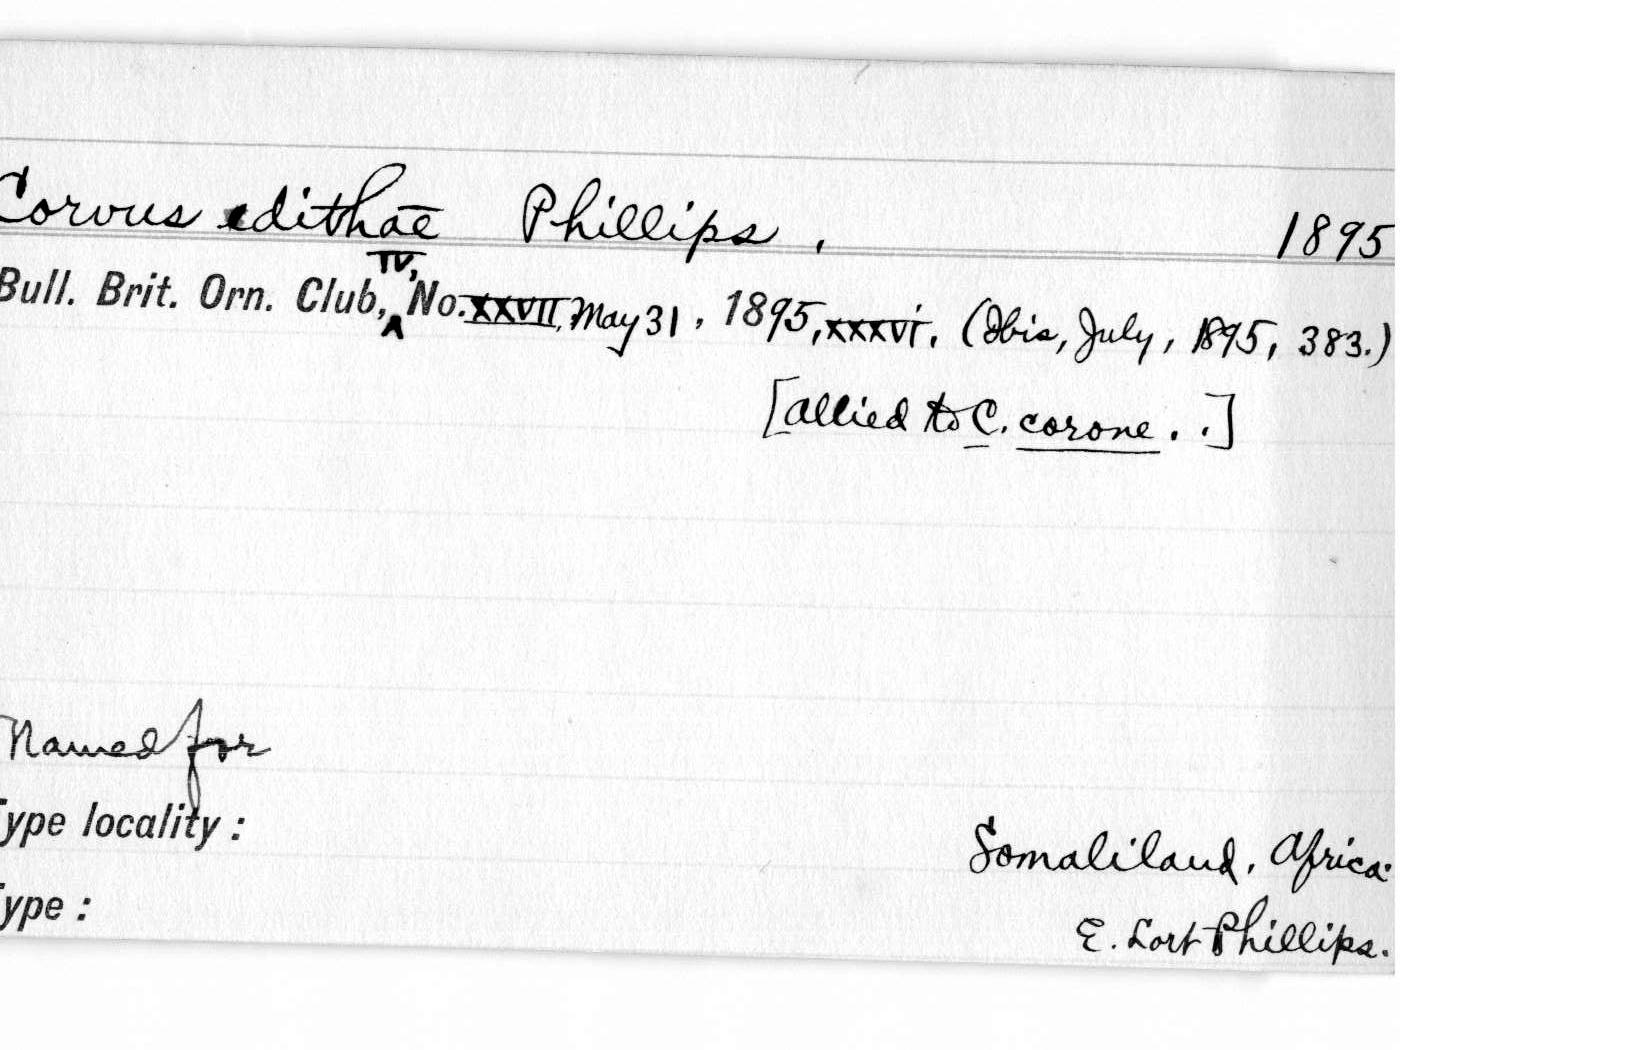 Corvus edithae Phillips. 1895
Bull. Brit. Orn. Club, IV, No. XXVII, May 31, 1895, xxxvi. (Ibis, July, 1895, 383.)
[allied to C. corone . .]
Named for
Type locality : Somaliland, Africa.
Type : E. Lort Phillips.